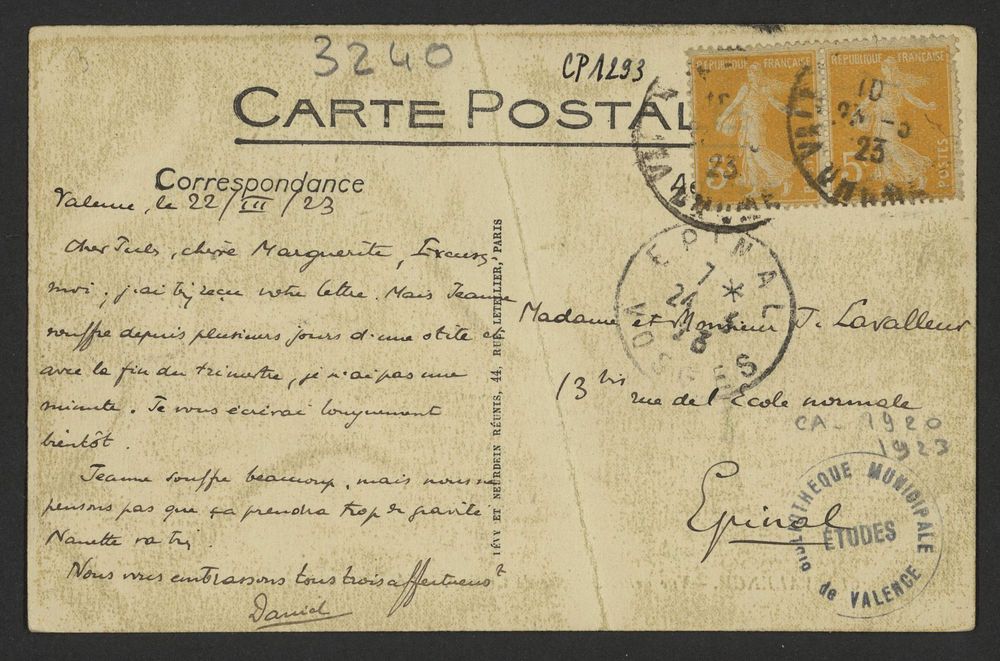 3240
CP1293
CARTE POSTAL
REPUBLIQUE FRANÇAISE
REPUBLIQUE FRANÇAISE
POSTES
10
23
10
23
5
5
Correspondance
Valence, le 22/III/23
Cher Jules, chère Marguerite, Excusez
moi; j'ai bj reçu votre lettre. Mais Jeanne
souffre depuis plusieurs jours d'une otite et
avec la fin du trimestre, je n'ai pas une
minute. Je vous écrirai longuement
bientôt.
Jeanne souffre beaucoup, mais nous ne
pensons pas que ça prendra trop de gravité.
Nanette va
Nous vous embrassons tous trois affectueus^t
Daniel
LÉVY ET NEURDEIN RÉUNIS, 44, RUE LETELLIER, PARIS
EPINAL
7 *
24
VOSGES
Madame et Monsieur J. Lavalleur
13 bis rue de l'Ecole normale
Epinal
CA - 1920
1923
BIBLIOTHEQUE MUNICIPALE
ÉTUDES
de VALENCE